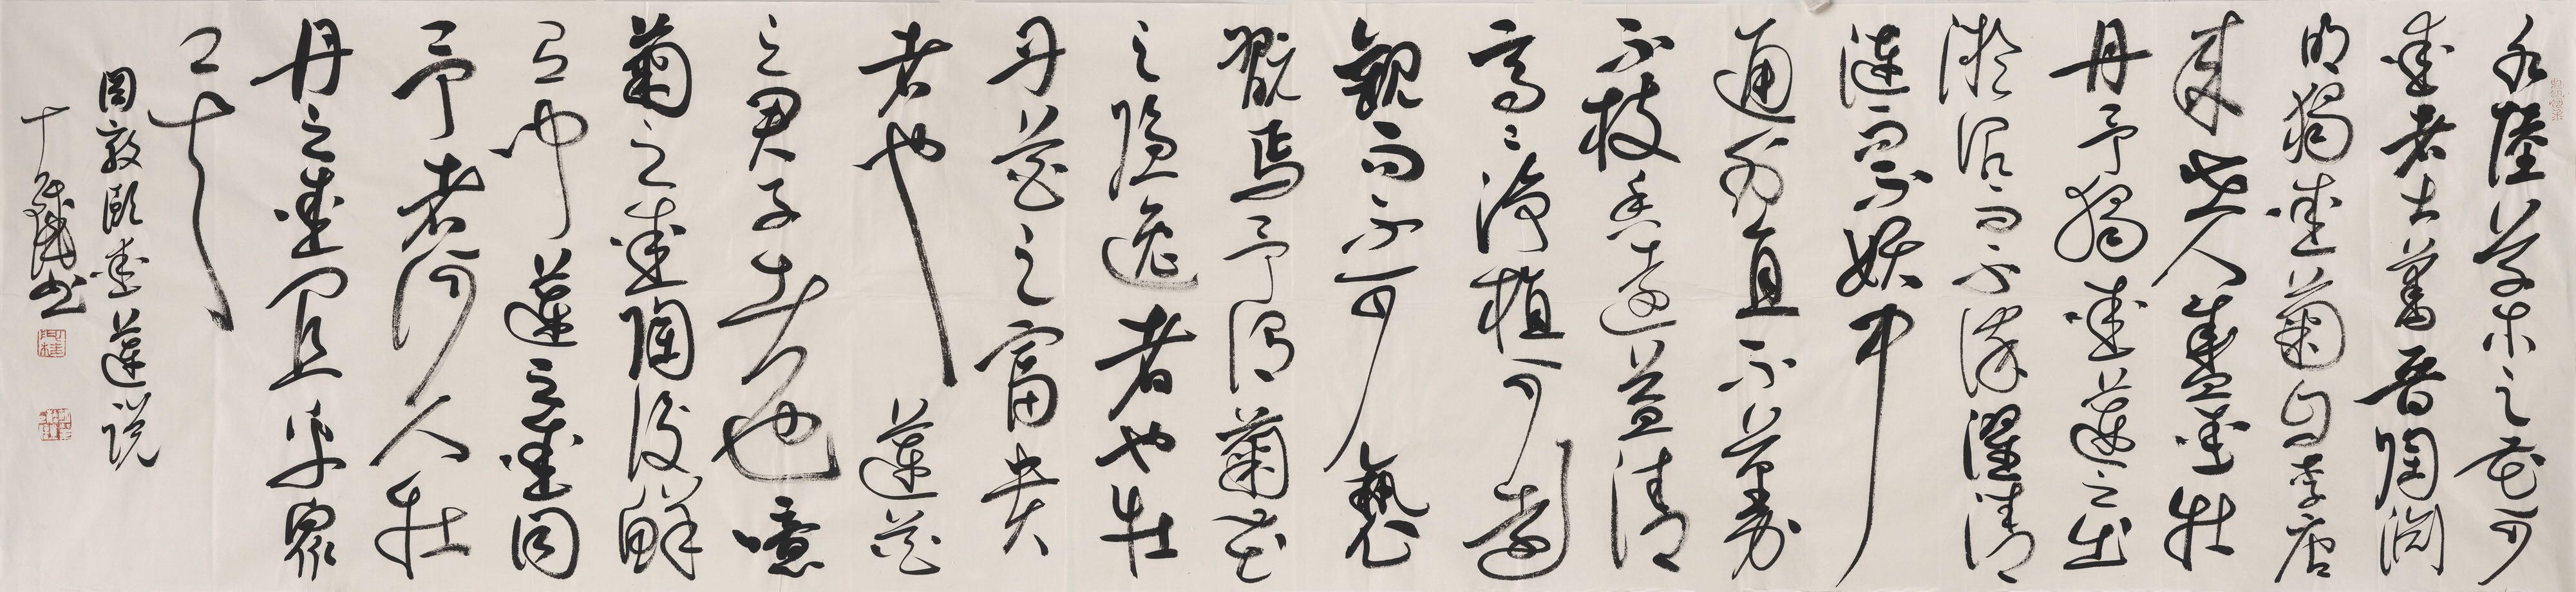 水陸草木之花可
愛者甚蕃晉陶淵
明獨愛菊自李唐
來世人甚愛牡
丹予獨愛蓮之出
淤泥而不染濯清
漣而不妖中
通外直不蔓
不枝香遠益清
亭々淨植可遠
觀而不可褻
翫焉予謂菊花
之隱逸者也牡
丹花之富貴
者也蓮花
之君子者也噫
菊之愛陶後鮮
有聞蓮之愛同
予者何人牡
丹之愛宜乎眾
矣
周敦頤愛蓮說
書